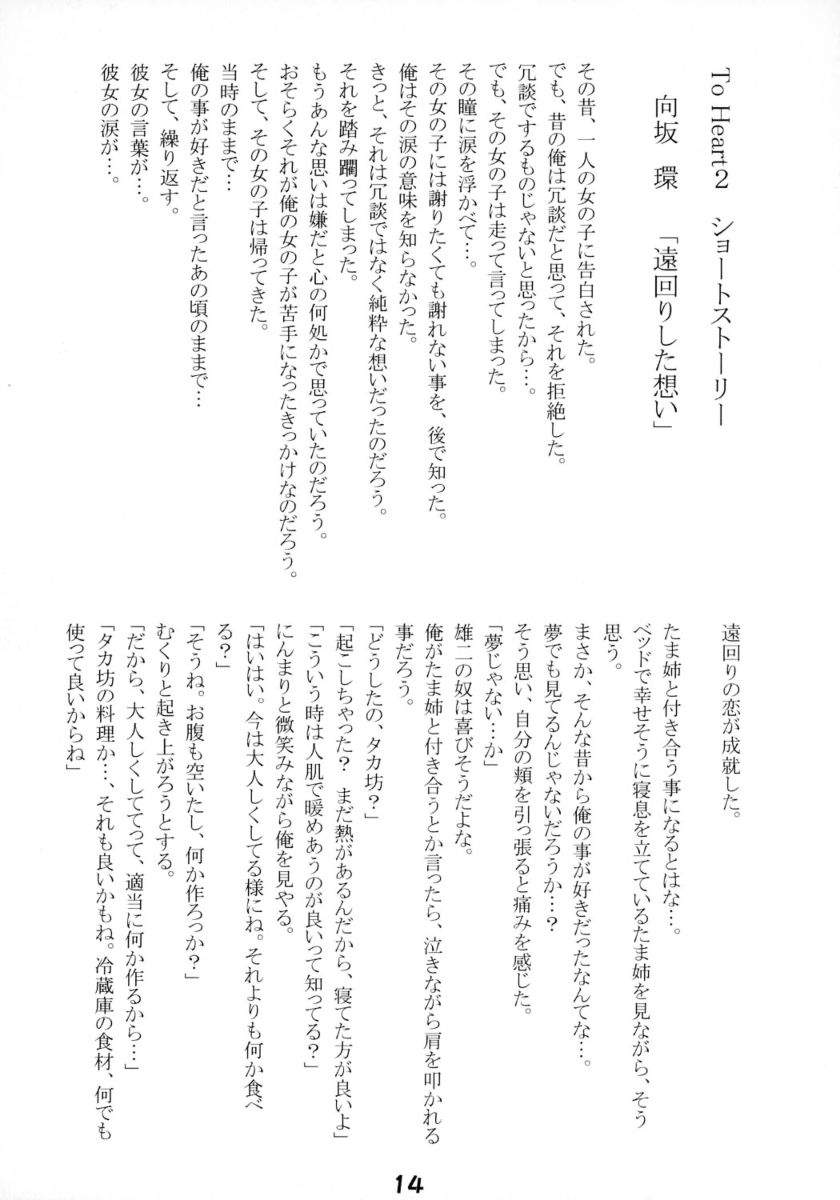 To Heart2　ショートストーリー
向坂　環　「遠回りした想い」
その昔、一人の女の子に告白された。
でも、昔の俺は冗談だと思って、それを拒絶した。
冗談でするものじゃないと思ったから…。
でも、その女の子は走って言ってしまった。
その瞳に涙を浮かべて…。
その女の子には謝りたくても謝れない事を、後で知った。
俺はその涙の意味を知らなかった。
きっと、それは冗談ではなく純粋な想いだったのだろう。
それを踏み躙ってしまった。
もうあんな思いは嫌だと心の何処かで思っていたのだろう。
おそらくそれが俺の女の子が苦手になったきっかけなのだろう。
そして、その女の子は帰ってきた。
当時のままで…
俺の事が好きだと言ったあの頃のままで…
そして、繰り返す。
彼女の言葉が…。
彼女の涙が…。
遠回りの恋が成就した。
たま姉と付き合う事になるとはな…。
ベッドで幸せそうに寝息を立てているたま姉を見ながら、そう
思う。
まさか、そんな昔から俺の事が好きだったなんてな…。
夢でも見てるんじゃないだろうか…？
そう思い、自分の頬を引っ張ると痛みを感じた。
「夢じゃない…か」
雄二の奴は喜びそうだよな。
俺がたま姉と付き合うとか言ったら、泣きながら肩を叩かれる
事だろう。
「どうしたの、タカ坊？」
「起こしちゃった？　まだ熱があるんだから、寝てた方が良いよ」
「こういう時は人肌で暖めあうのが良いって知ってる？」
にんまりと微笑みながら俺を見やる。
「はいはい。今は大人しくしてる様にね。それよりも何か食べ
る？」
「そうね。お腹も空いたし、何か作ろっか？」
むくりと起き上がろうとする。
「だから、大人しくしてってって、適当に何か作るから…」
「タカ坊の料理か…、それも良いかもね。冷蔵庫の食材、何でも
使って良いからね」
14